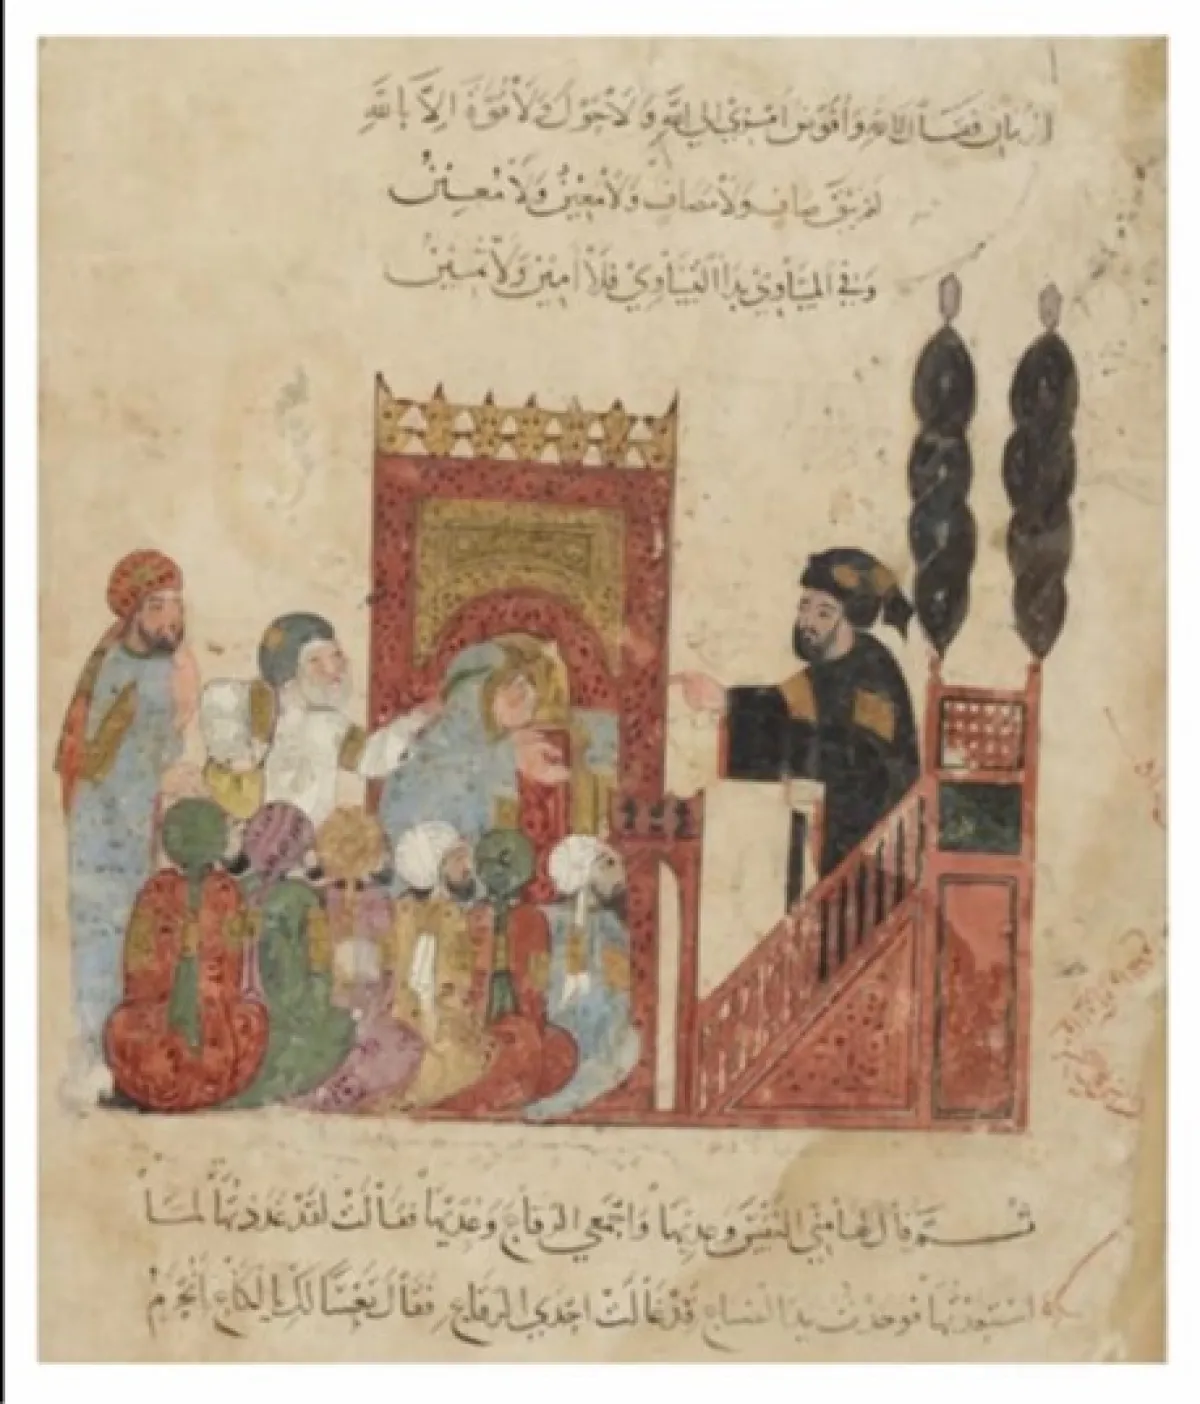 فقال انا لله وَأُفَوِّضُ أَمْرِي إلى اللهِ وَلَا حَوْلَ وَلَا قُوَّةَ إِلَّا بِاللهِ
لم يَبْقَ صافٍ وَلَا مُصَافٍ وَلَا مَعِينٌ وَلَا مُعِينُ
وَفي المَسَاوِي بَدَا التَّسَاوِي فَلَا أَمِينٌ وَلَا ثَمِينُ
ثُمَّ قال لها مَنِّي النفسَ وعِدِيهَا وَاجْمَعِي الرِقَاعَ وَعُدِّيهَا فَقَالَتْ لَقَدْ عَدَدْتُهَا لَمَّا
استعدتُهَا فوجدتُ يدَ الضياعِ قَدْ غَالَتْ احدَى الرِقَاعِ فَقَالَ تَعْسًا لَكِ يا لكَاعِ أَنُحْرَمُ